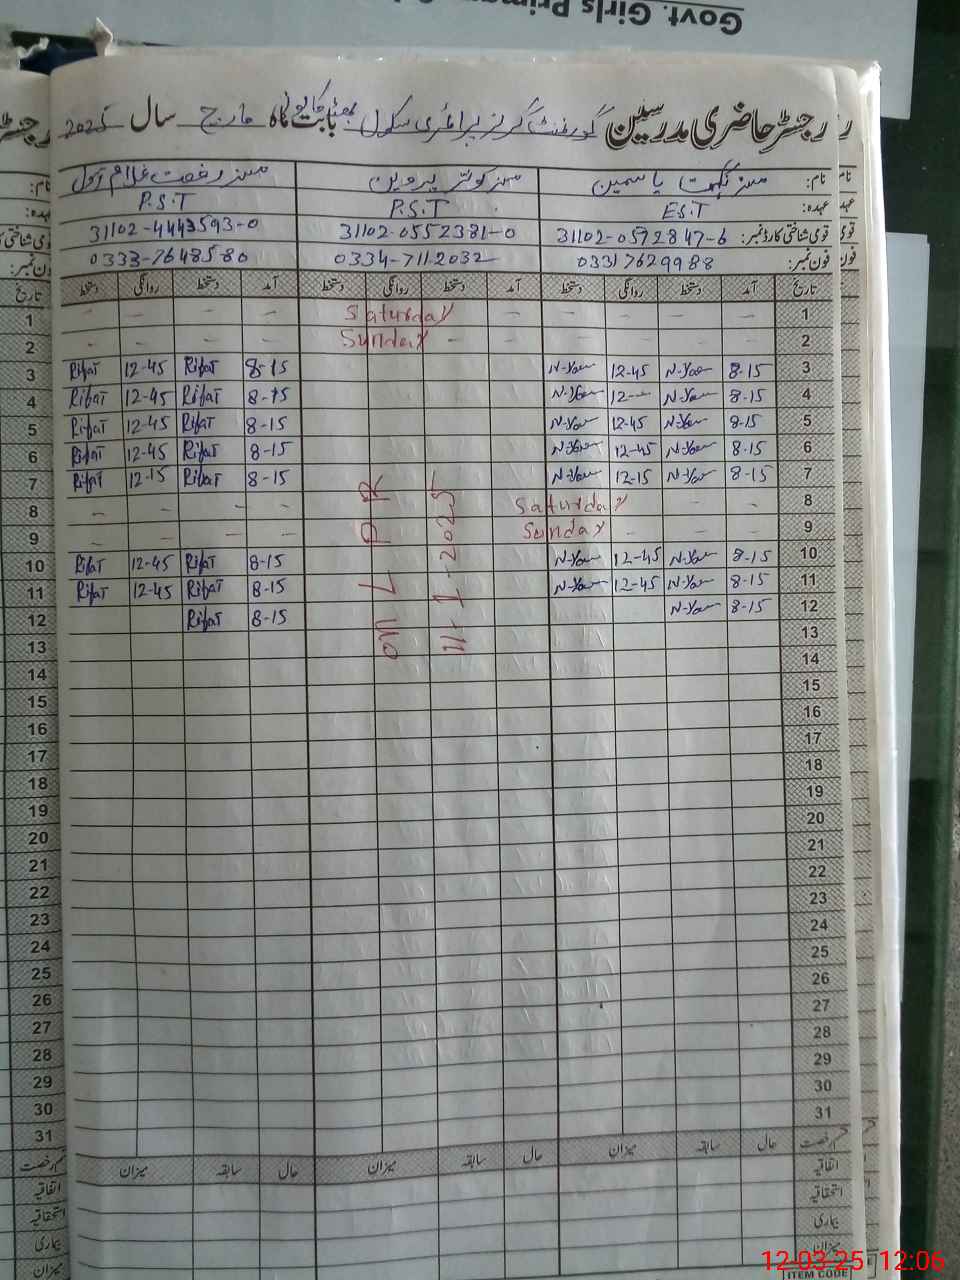 Govt. Girls Prima
رجسٹر حاضری مدرسین گورنمنٹ گرلز پرائمری سکول بابت ماہ مارچ سال 2025
نام: مسز نگہت یاسمین مسز کوثر پروین مسز رفعت غلام رسول
عہدہ: E.S.T P.S.T P.S.T
قومی شناختی کارڈ نمبر: 31102-0572847-6 31102-0552381-0 31102-4443593-0
فون نمبر: 03317629988 0334-7112032 0333-7648580
تاریخ آمد دستخط روانگی دستخط آمد دستخط روانگی دستخط آمد دستخط روانگی دستخط تاریخ
1 - - - - Saturday - - - - 1
2 - - - - Sunday - - - - 2
3 Rifat 12-45 Rifat 8-15 N-Yas 12-45 N-Yas 8-15 3
4 Rifat 12-45 Rifat 8-15 N-Yas 12-- N-Yas 8-15 4
5 Rifat 12-45 Rifat 8-15 N-Yas 12-45 N-Yas 8-15 5
6 Rifat 12-45 Rifat 8-15 N-Yas 12-45 N-Yas 8-15 6
7 Rifat 12-15 Rifat 8-15 N-Yas 12-15 N-Yas 8-15 7
8 - - - - Saturday - - 8
9 - - - - Sunday - - 9
10 Rifat 12-45 Rifat 8-15 N-Yas 12-45 N-Yas 8-15 10
11 Rifat 12-45 Rifat 8-15 N-Yas 12-45 N-Yas 8-15 11
12 Rifat 8-15 N-Yas 8-15 12
on L P R
11-1-2025
13 13
14 14
15 15
16 16
17 17
18 18
19 19
20 20
21 21
22 22
23 23
24 24
25 25
26 26
27 27
28 28
29 29
30 30
31 31
قسم رخصت حال سابقہ میزان حال سابقہ میزان حال سابقہ میزان قسم رخصت
اتفاقیہ اتفاقیہ
استحقاقیہ استحقاقیہ
بیماری بیماری
میزان میزان
ITEM CODE
12-03-25 12:06